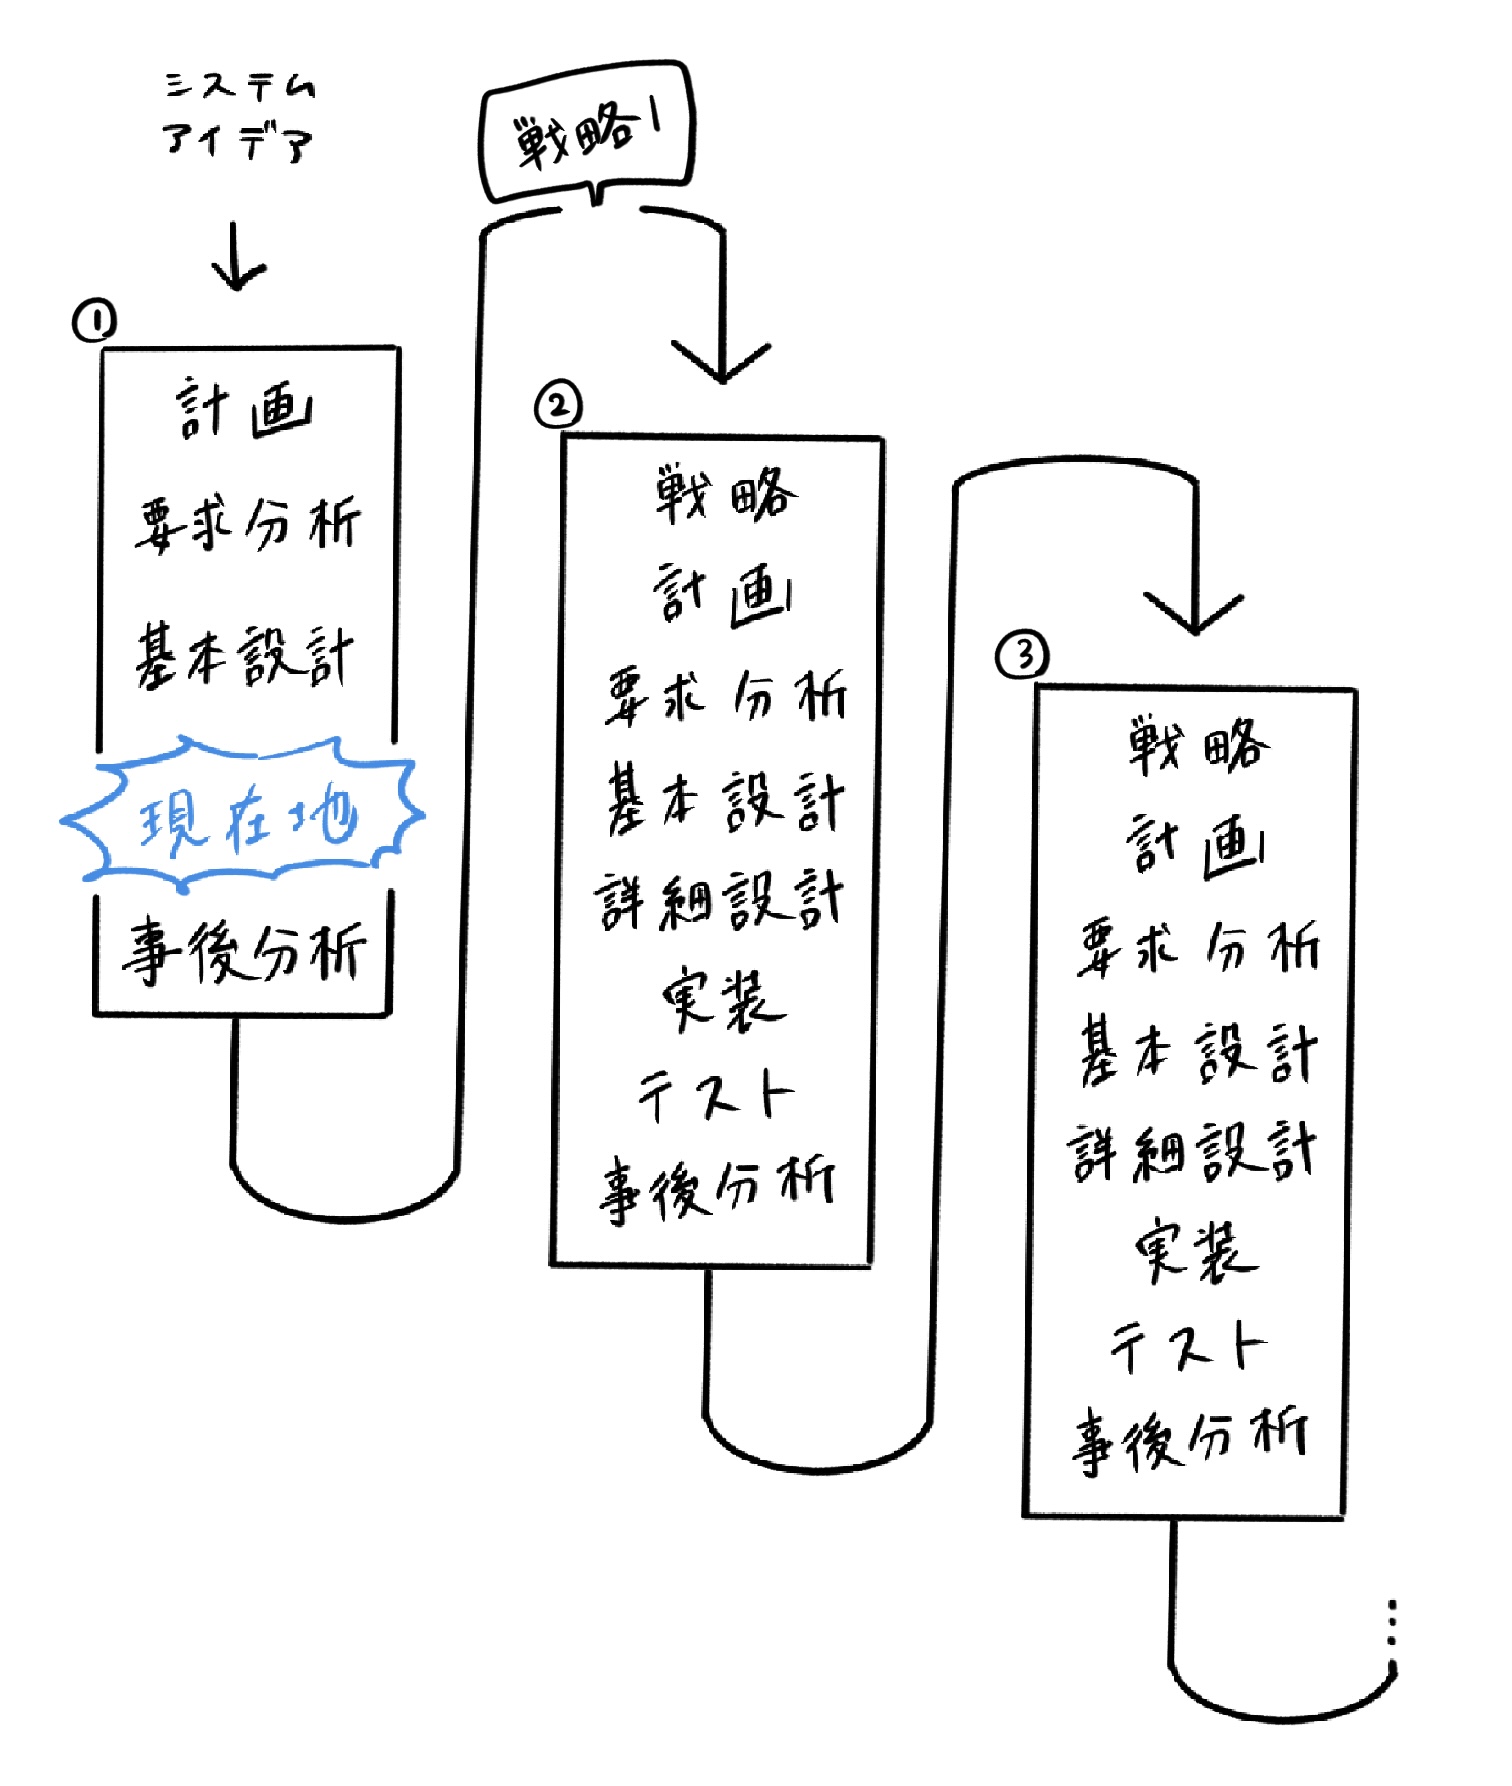 システム
アイデア
戦略1
①
計画
要求分析
基本設計
現在地
事後分析
②
戦略
計画
要求分析
基本設計
詳細設計
実装
テスト
事後分析
③
戦略
計画
要求分析
基本設計
詳細設計
実装
テスト
事後分析